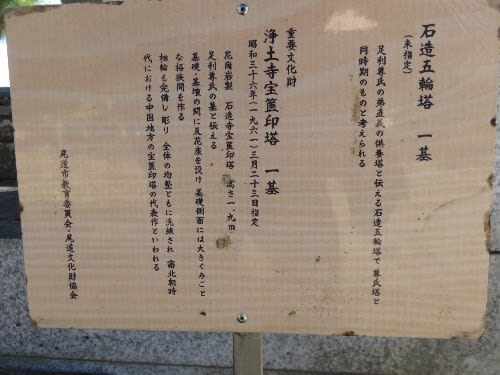 石造五輪塔 一基
(未指定)
足利尊氏の弟直義の供養塔と伝える石造五輪塔で 尊氏塔と
同時期のものと考えられる
重要文化財
浄土寺宝篋印塔 一基
昭和三十六年(一九六一)三月二十三日指定
花崗岩製 石造寺宝篋印塔 高さ一.九m
足利尊氏の墓と伝える
基礎・基壇の間に反花座を設け 基礎側面には大きくみごと
な格狭間を作る
相輪も完備し 彫り 全体の均整ともに洗練され 南北朝時
代における中国地方の宝篋印塔の代表作といわれる
尾道市教育委員会・尾道文化財協会